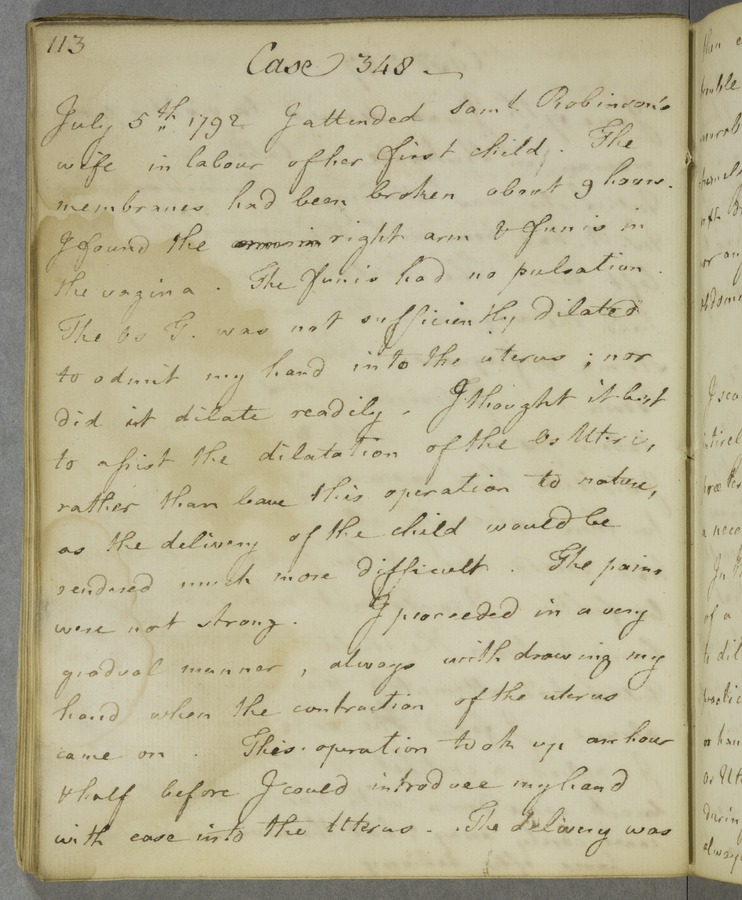 113
Case 348 -
July 5th 1792 I attended Saml. Robinson's
wife in labour of her first child. The
membranes had been broken about 9 hours.
I found the right arm & funis in
the vagina. The funis had no pulsation.
The Os T. was not sufficiently dilated
to admit my hand into the uterus; nor
did it dilate readily. I thought it best
to assist the dilatation of the Os Uteri,
rather than leave this operation to nature,
as the delivery of the child would be
rendered much more difficult. The pains
were not strong. I proceeded in a very
gradual manner, always with drawing my
hand when the contraction of the uterus
came on. This operation took up an hour
& half before I could introduce my hand
with ease into the Uterus. The delivery was